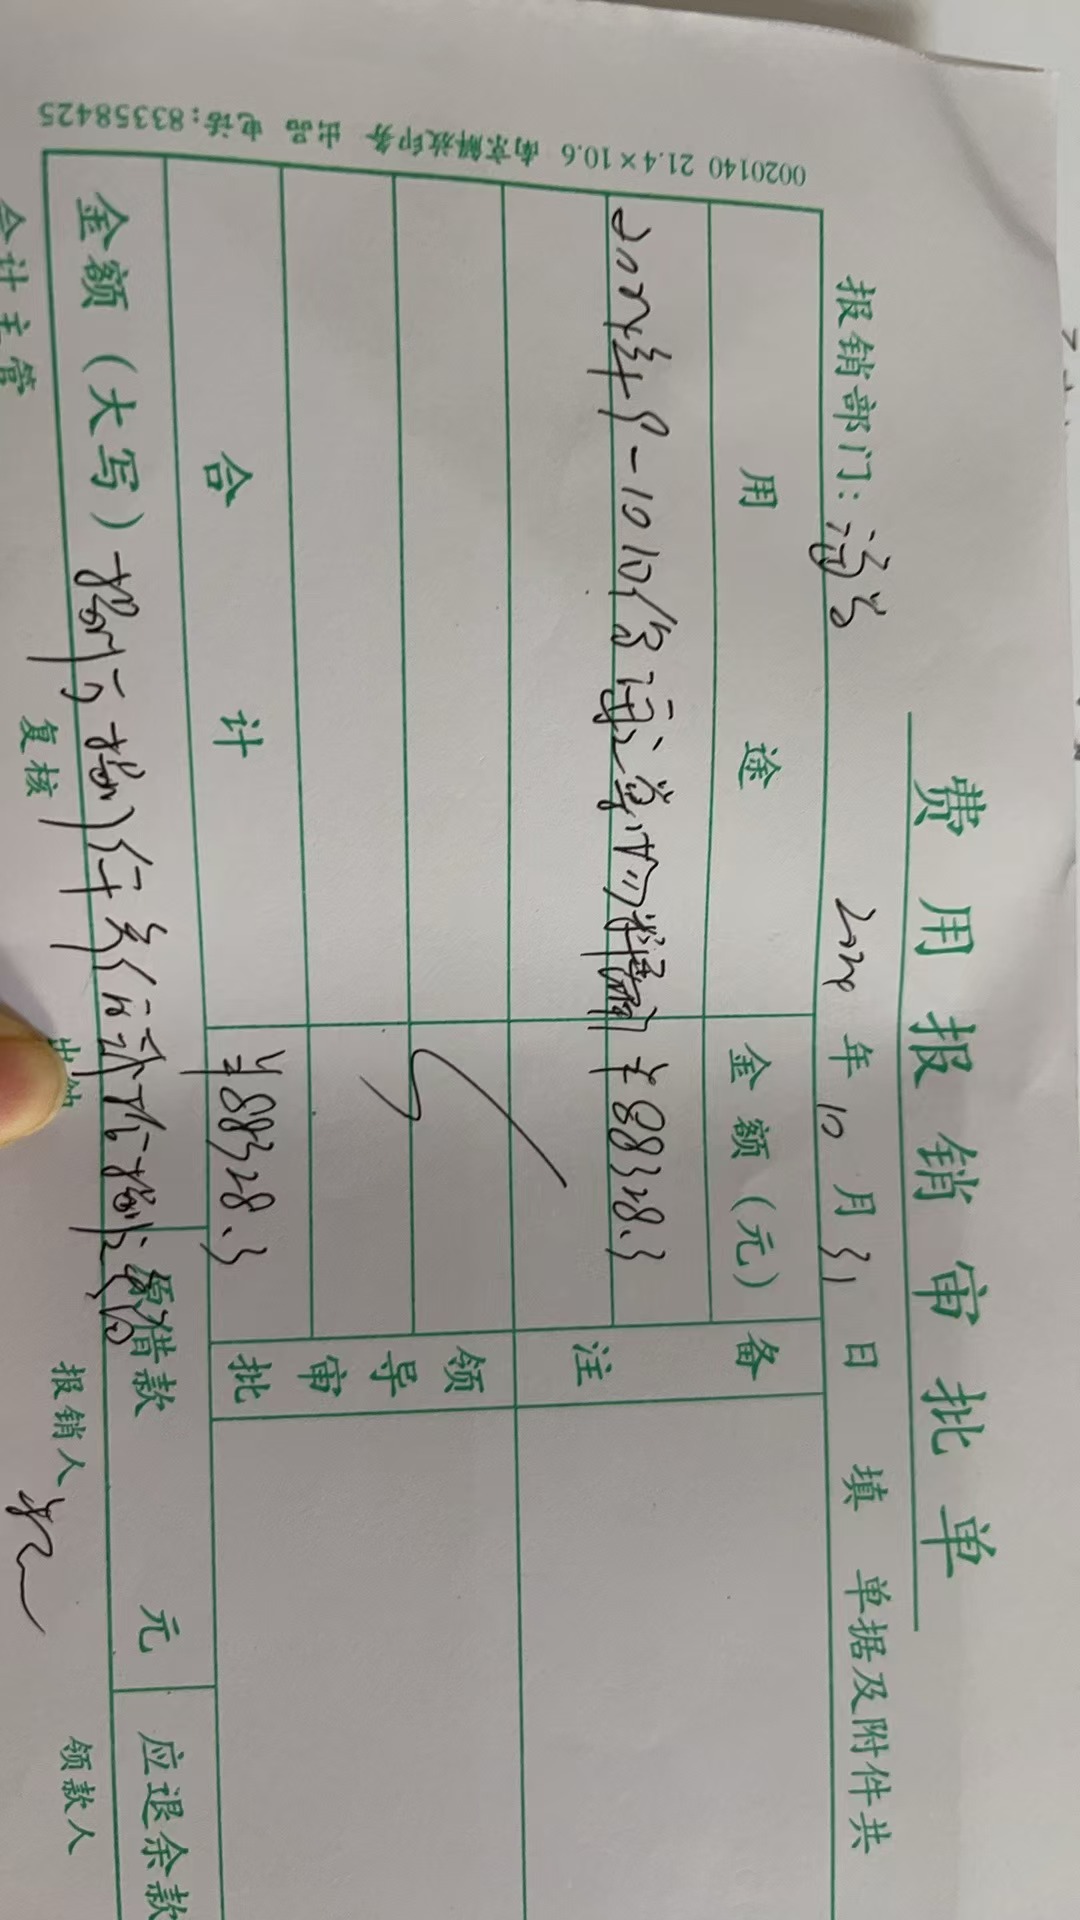 费用报销审批单
报销部门: 2024 年 10 月 31 日 填 单据及附件共
用 途 金 额 (元) 备
注
2024年9-10月份 ¥88328.3
领
导
审
批
合 计 ¥88328.3
金额(大写) 捌万捌仟叁佰贰拾捌元叁角 原借款 元 应退余款
会计主管 复核 出纳 报销人 领款人
0020140 21.4×10.6 南京解放印务 出品 电话:83358425